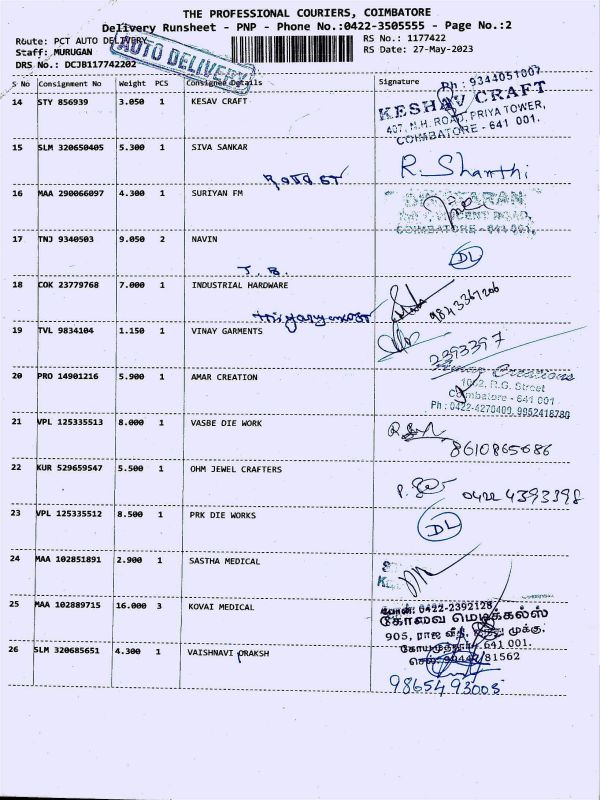 THE PROFESSIONAL COURIERS, COIMBATORE
Delivery Runsheet - PNP - Phone No.:0422-3505555 - Page No.:2
Route: PCT AUTO DELIVERY
RS No.: 1177422
Staff: MURUGAN
RS Date: 27-May-2023
DRS No.: DCJB117742202
AUTO DELIVERY
S No Consignment No Weight PCS Consignee Details Signature
14 STY 856939 3.050 1 KESAV CRAFT
Ph: 9344051007
KESHAV CRAFT
407, N.H. ROAD, PRIYA TOWER,
COIMBATORE - 641 001.
15 SLM 320650405 5.300 1 SIVA SANKAR
R. Shanthi
16 MAA 290066097 4.300 1 SURIYAN FM
COIMBATORE - 641 001.
17 TNJ 9340503 9.050 2 NAVIN
DL
J. B.
18 COK 23779768 7.000 1 INDUSTRIAL HARDWARE
9843367206
19 TVL 9834104 1.150 1 VINAY GARMENTS
2393397
20 PRO 14901216 5.900 1 AMAR CREATION
Amar Creations
1082, R.G. Street
Coimbatore - 641 001
Ph : 0422-4270400, 9952418780
21 VPL 125335513 8.000 1 VASBE DIE WORK
8610865686
22 KUR 529659547 5.500 1 OHM JEWEL CRAFTERS
0422 4393398
23 VPL 125335512 8.500 1 PRK DIE WORKS
DL
24 MAA 102851891 2.900 1 SASTHA MEDICAL
25 MAA 102889715 16.000 3 KOVAI MEDICAL
போன்: 0422-2392128
கோவை மெடிக்கல்ஸ்
905, ராஜ வீதி, முக்கு,
கோயமுத்தூர் 641 001.
செல்: 81562
26 SLM 320685651 4.300 1 VAISHNAVI PRAKSH
9865493003